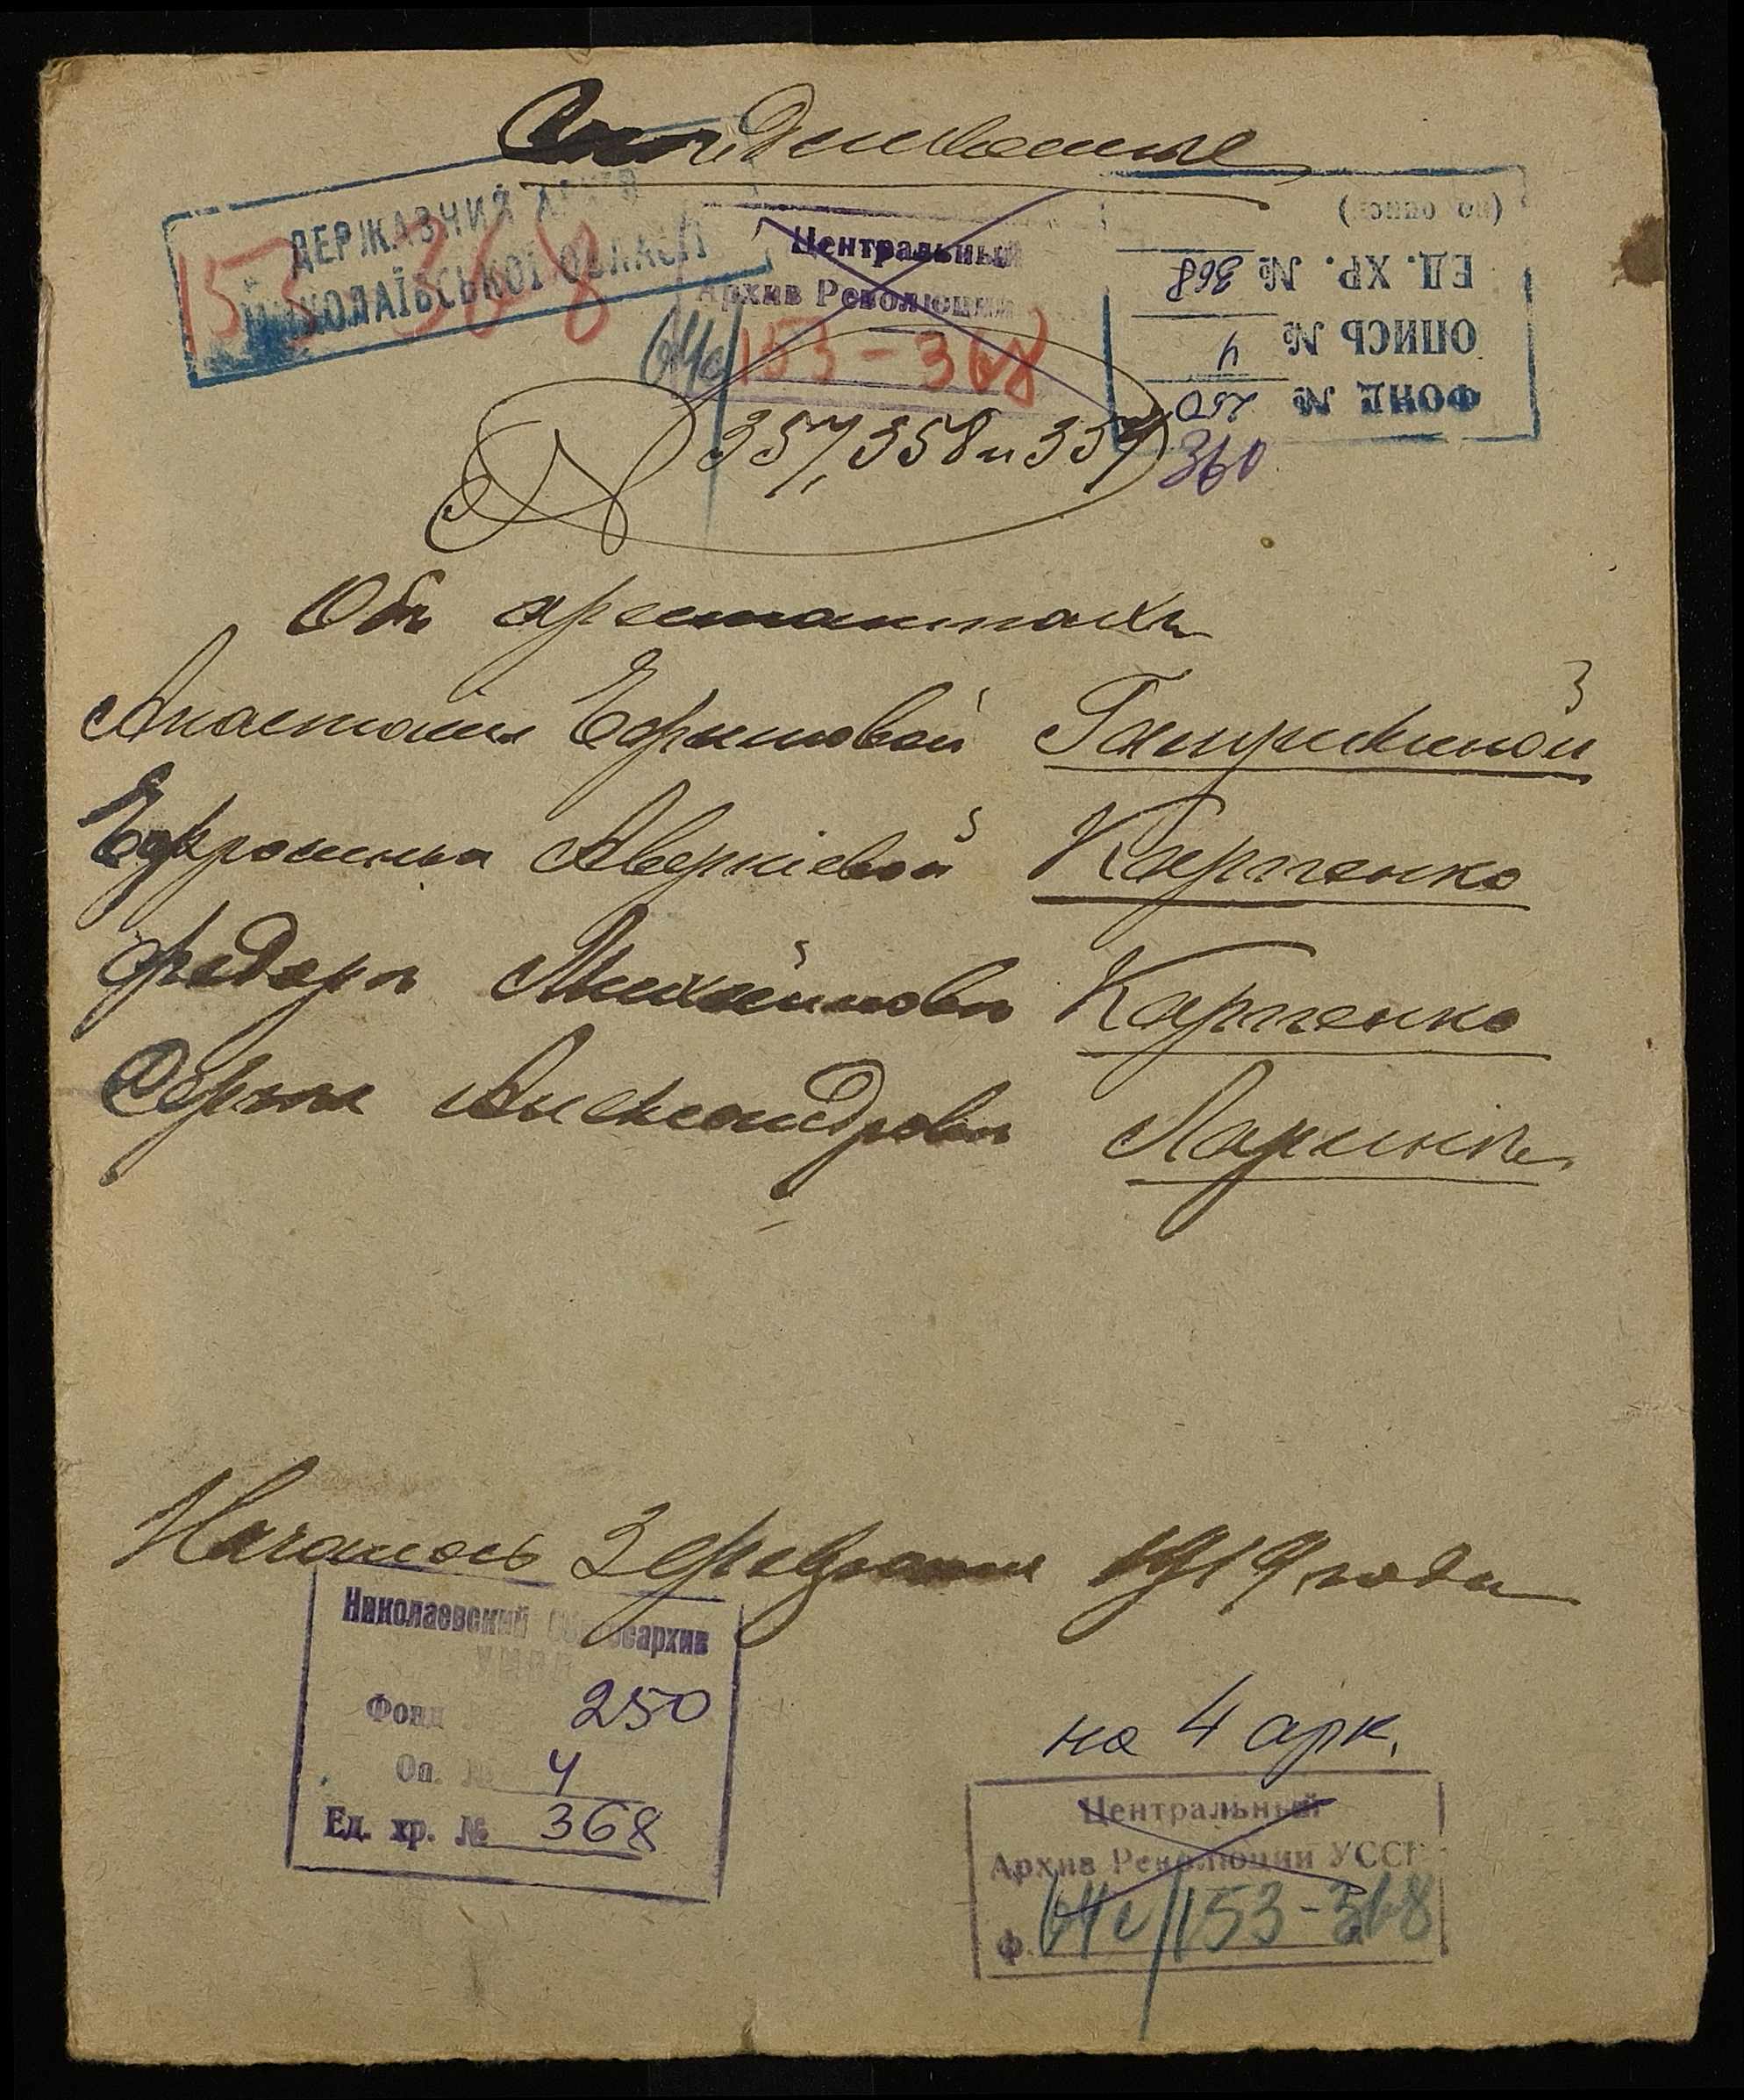 ДЕРЖАВНИЙ АРХІВ
МИКОЛАЇВСЬКОЇ ОБЛАСТІ
153 368
Центральный
Архив Революции
64с/153-368
(по описи)
ЕД. ХР. № 368
ОПИСЬ № 4
ФОНД № 250
№ 357, 358 и 359
360
Объ арестантахъ
Анастасіи Ефимовой
Ефросиньи Аверкіевой Карпенко
Федоръ Михайловъ Карпенко
Сергѣй Александровъ Ларинъ
Началось 3 февраля 1919 года
Николаевский Облгосархив
УМВД
Фонд 250
Оп. № 4
Ед. хр. № 368
на 4 арк.
Центральный
Архив Революции УССР
ф. 64с/153-368